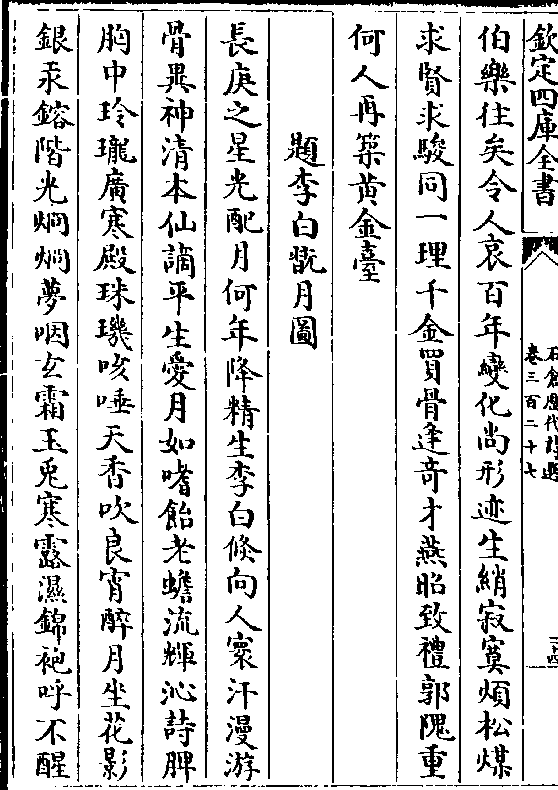 欽定四庫全書
石倉歷代詩選
卷三百二十七
二十四
伯樂往矣令人哀百年變化尚形迹生綃寂寞煩松煤
求賢求駿同一理千金買骨逢奇才燕昭致禮郭隗重
何人再築黃金臺
題李白翫月圖
長庚之星光配月何年降精生李白倐向人寰汗漫游
骨異神清本仙謫平生愛月如嗜飴老蟾流輝沁詩脾
胸中玲瓏廣寒殿珠璣咳唾天香吹良宵醉月坐花影
銀汞鎔階光烱烱夢咽玄霜玉兎寒露濕錦袍呼不醒